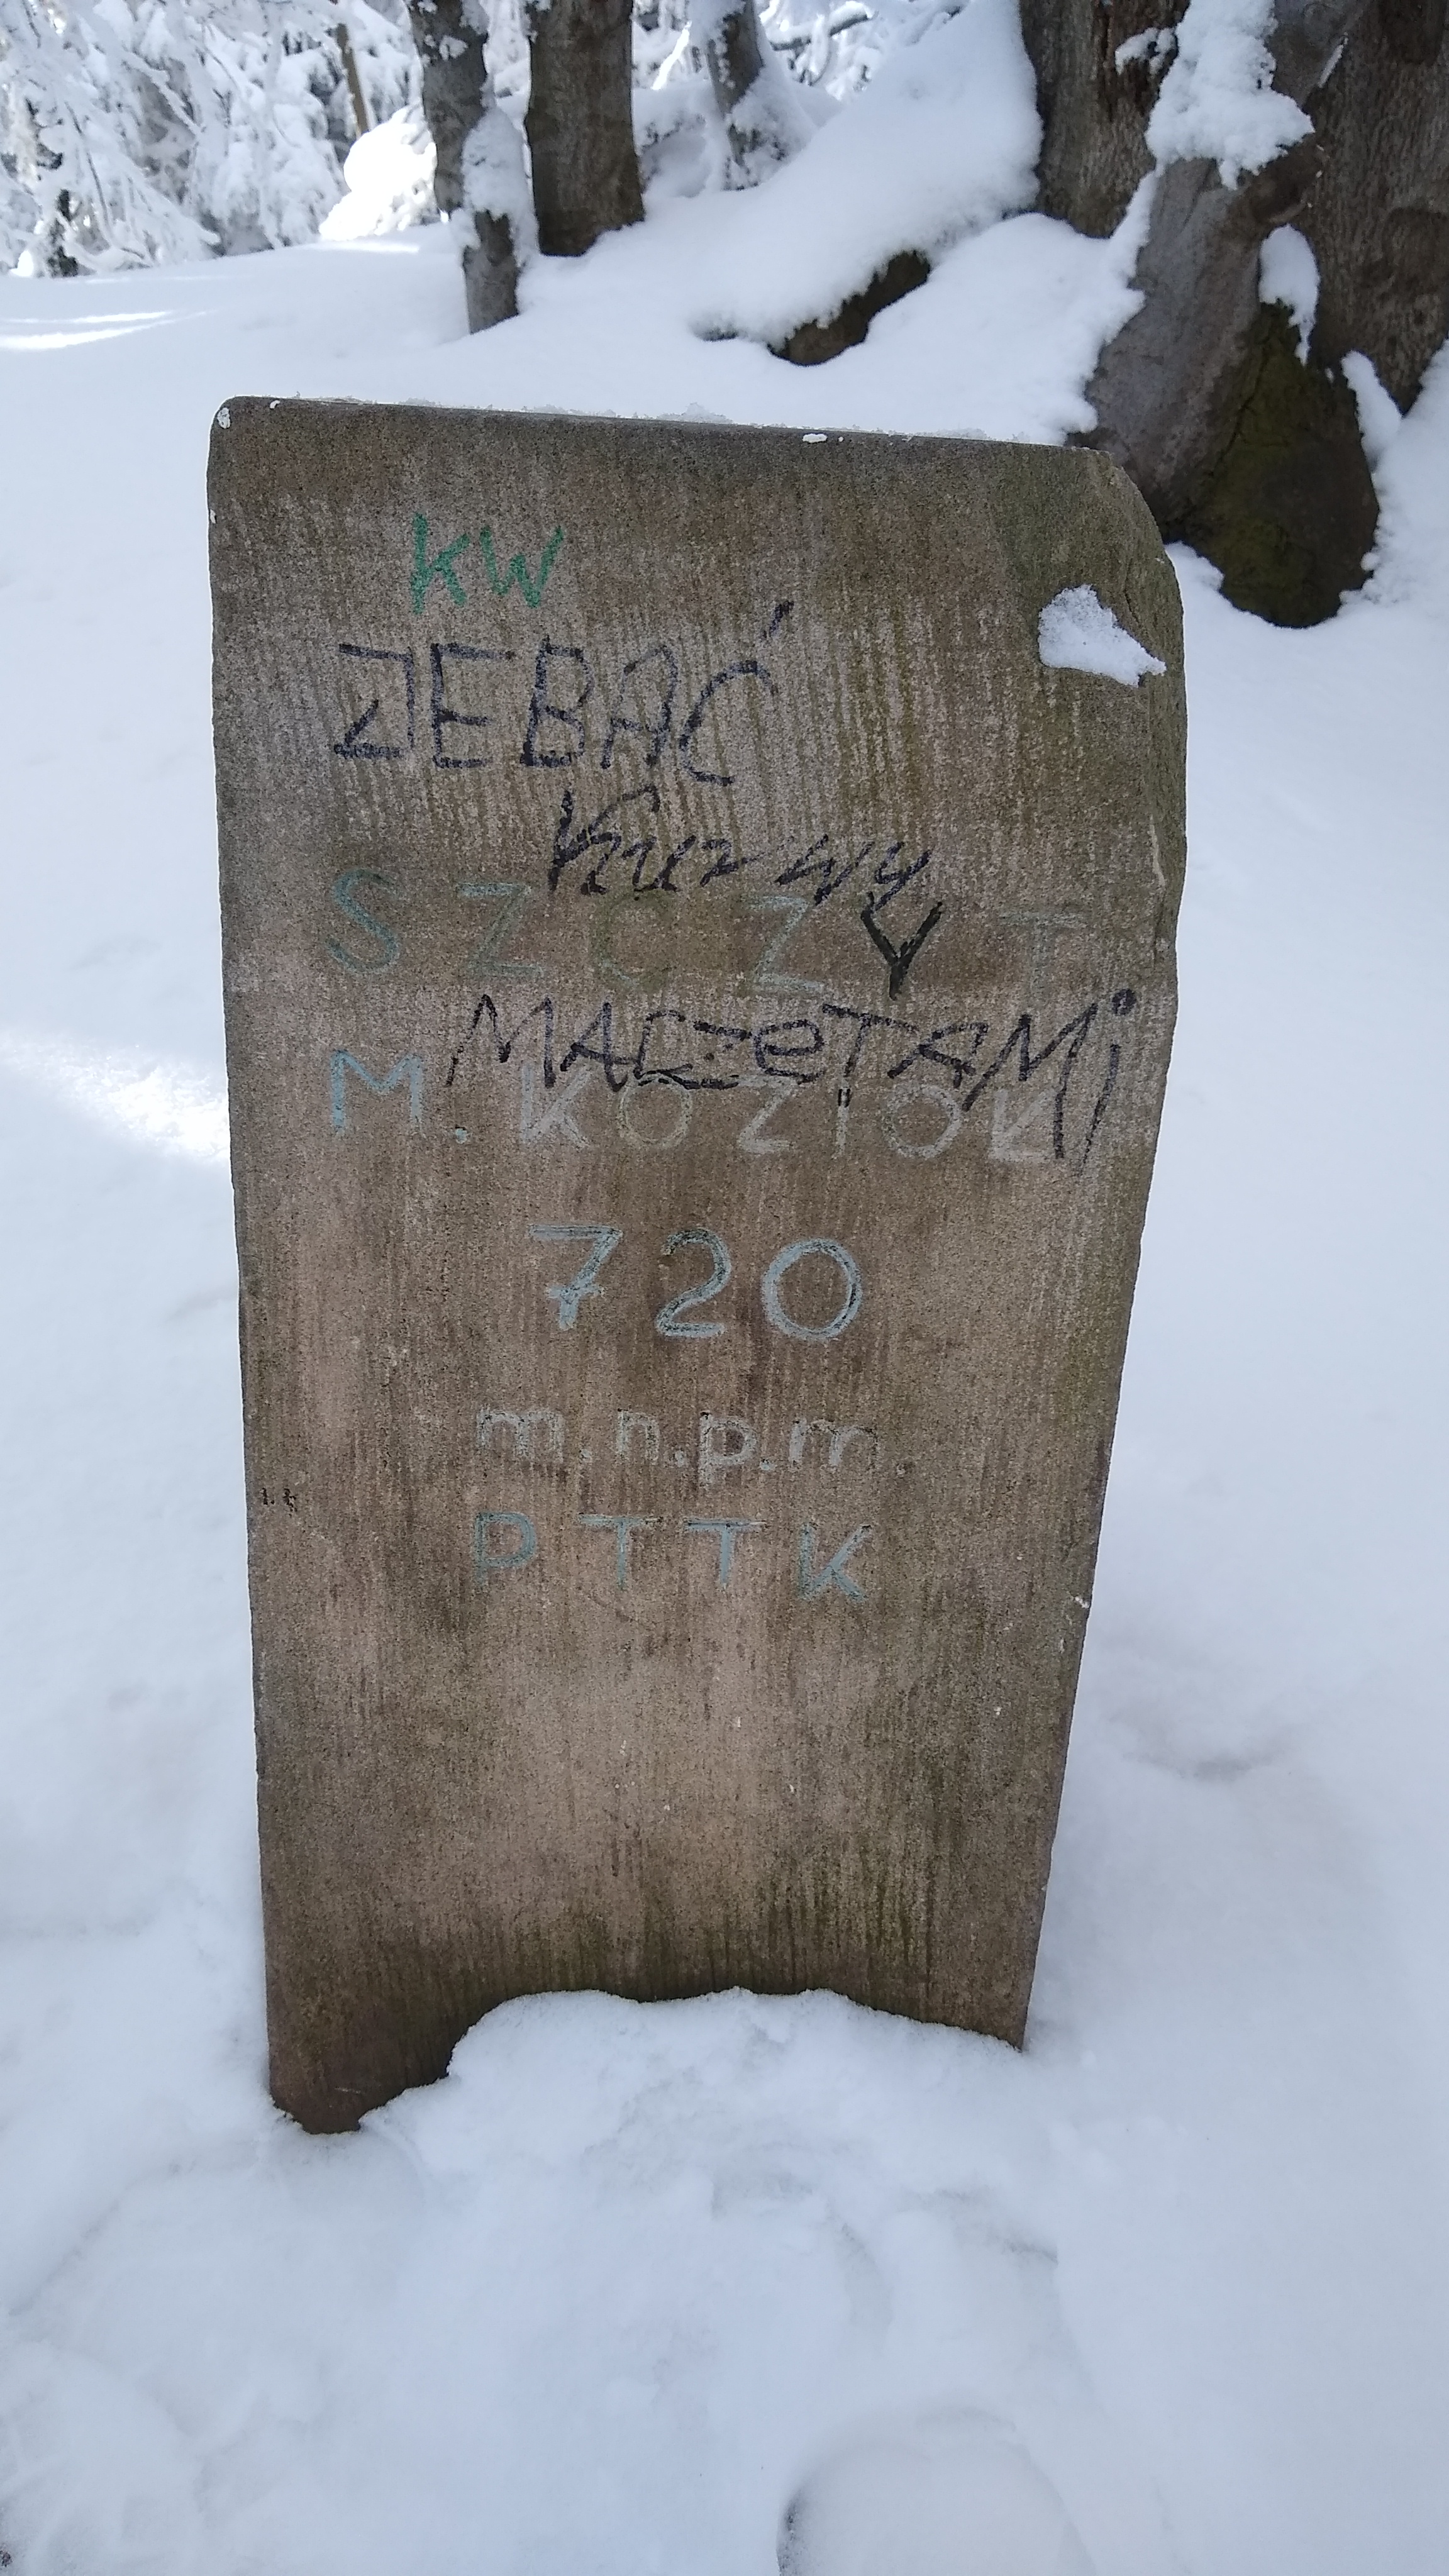 KW
JEBAĆ
Kurwy
SZCZYT
MACZETAMi
M. KOZIOŁ
720
m.n.p.m.
PTTK